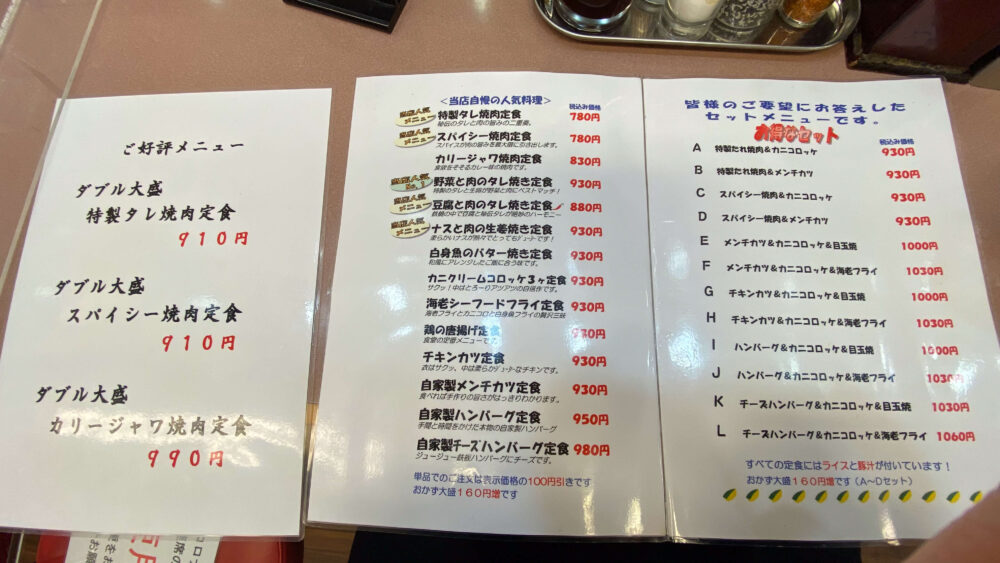 ご好評メニュー
ダブル大盛
特製タレ焼肉定食
910円
ダブル大盛
スパイシー焼肉定食
910円
ダブル大盛
カリージャワ焼肉定食
990円
<当店自慢の人気料理>
税込み価格
当店人気
メニュー
特製タレ焼肉定食 780円
秘伝のタレと肉の旨みの二重奏。
当店人気
メニュー
スパイシー焼肉定食 780円
スパイスが肉の旨みを最大限に引き出します。
カリージャワ焼肉定食 830円
食欲をそそるカレー味の焼肉です。
当店人気
No.1
野菜と肉のタレ焼き定食 930円
特製のタレと生姜が野菜と肉にベストマッチ!
当店人気
メニュー
豆腐と肉のタレ焼き定食 880円
鉄鍋の中で豆腐と秘伝タレが絶妙のハーモニー
当店人気
メニュー
ナスと肉の生姜焼き定食 930円
柔らかいナスが熱々でとってもジューシーです!
白身魚のバター焼き定食 930円
和風にアレンジしたご飯に合う味です。
カニクリームコロッケ3ヶ定食 930円
サクッ!中はとろ〜りアツアツの自信作です。
海老シーフードフライ定食 930円
海老フライとカニコロと白身魚フライの贅沢三昧
鶏の唐揚げ定食 930円
食堂の定番メニューです。
チキンカツ定食 930円
衣はサクッ、中は柔らかジューシーなチキンです。
自家製メンチカツ定食 930円
食べれば手作りの旨さがはっきりわかります。
自家製ハンバーグ定食 950円
手間と時間をかけた本物の自家製ハンバーグ
自家製チーズハンバーグ定食 980円
ジュージュー鉄板ハンバーグにチーズです。
単品でのご注文は表示価格の100円引きです
おかず大盛160円増です
皆様のご要望にお答えした
セットメニューです。
お得なセット
税込み価格
A 特製たれ焼肉&カニコロッケ 930円
B 特製たれ焼肉&メンチカツ 930円
C スパイシー焼肉&カニコロッケ 930円
D スパイシー焼肉&メンチカツ 930円
E メンチカツ&カニコロッケ&目玉焼 1000円
F メンチカツ&カニコロッケ&海老フライ 1030円
G チキンカツ&カニコロッケ&目玉焼 1000円
H チキンカツ&カニコロッケ&海老フライ 1030円
I ハンバーグ&カニコロッケ&目玉焼 1000円
J ハンバーグ&カニコロッケ&海老フライ 1030円
K チーズハンバーグ&カニコロッケ&目玉焼 1030円
L チーズハンバーグ&カニコロッケ&海老フライ 1060円
すべての定食にはライスと豚汁が付いています!
おかず大盛160円増です(A〜Dセット)